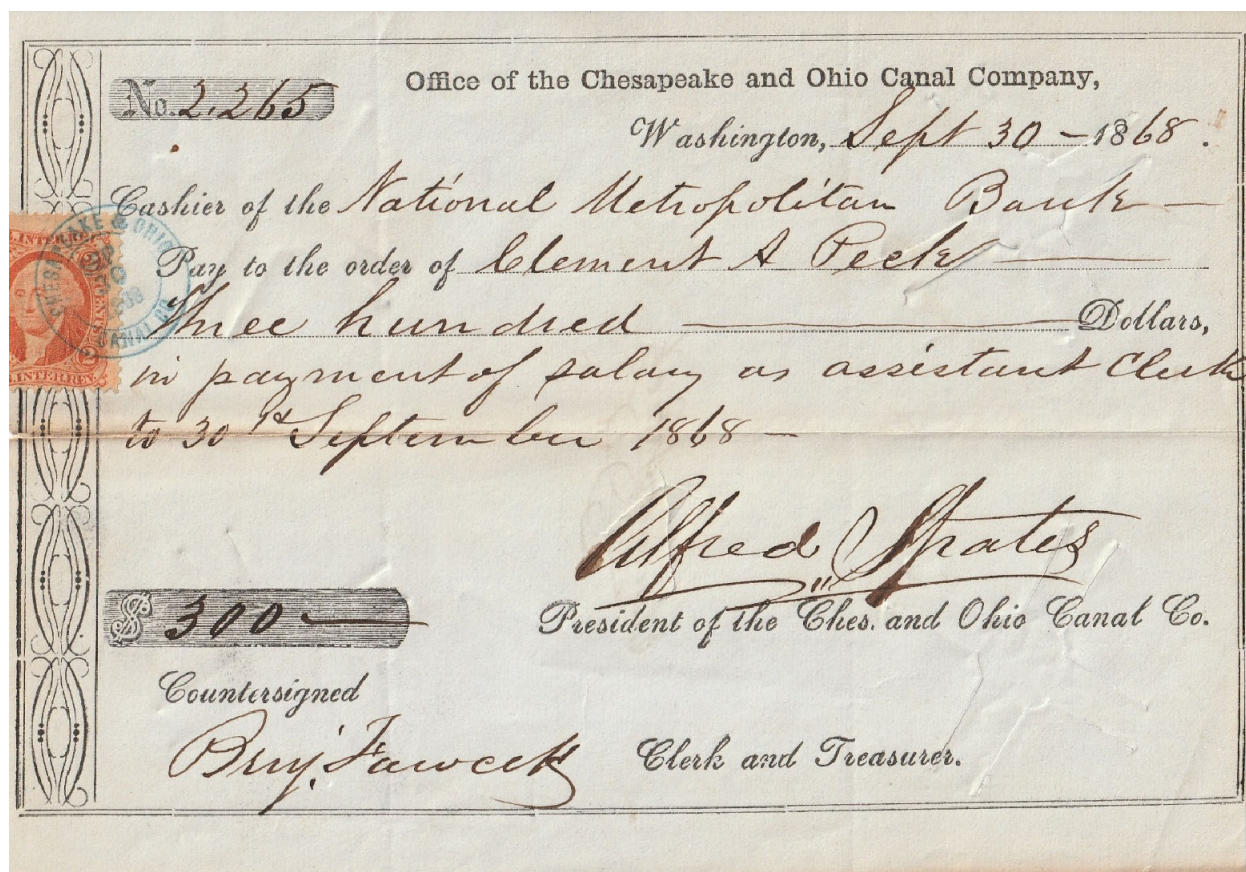 Office of the Chesapeake and Ohio Canal Company,
No. 2,265
Washington, Sept 30 - 1868.
Cashier of the National Metropolitan Bank
Pay to the order of Clement A Peck
Three hundred Dollars,
in payment of salary as assistant Clerk
to 30th September 1868 -
Alfred Spates
$ 300
President of the Ches. and Ohio Canal Co.
Countersigned
Benj. Fawcett
Clerk and Treasurer.
CHESAPEAKE & OHIO
CANAL CO.
INTER. REV.
INTER. REV.